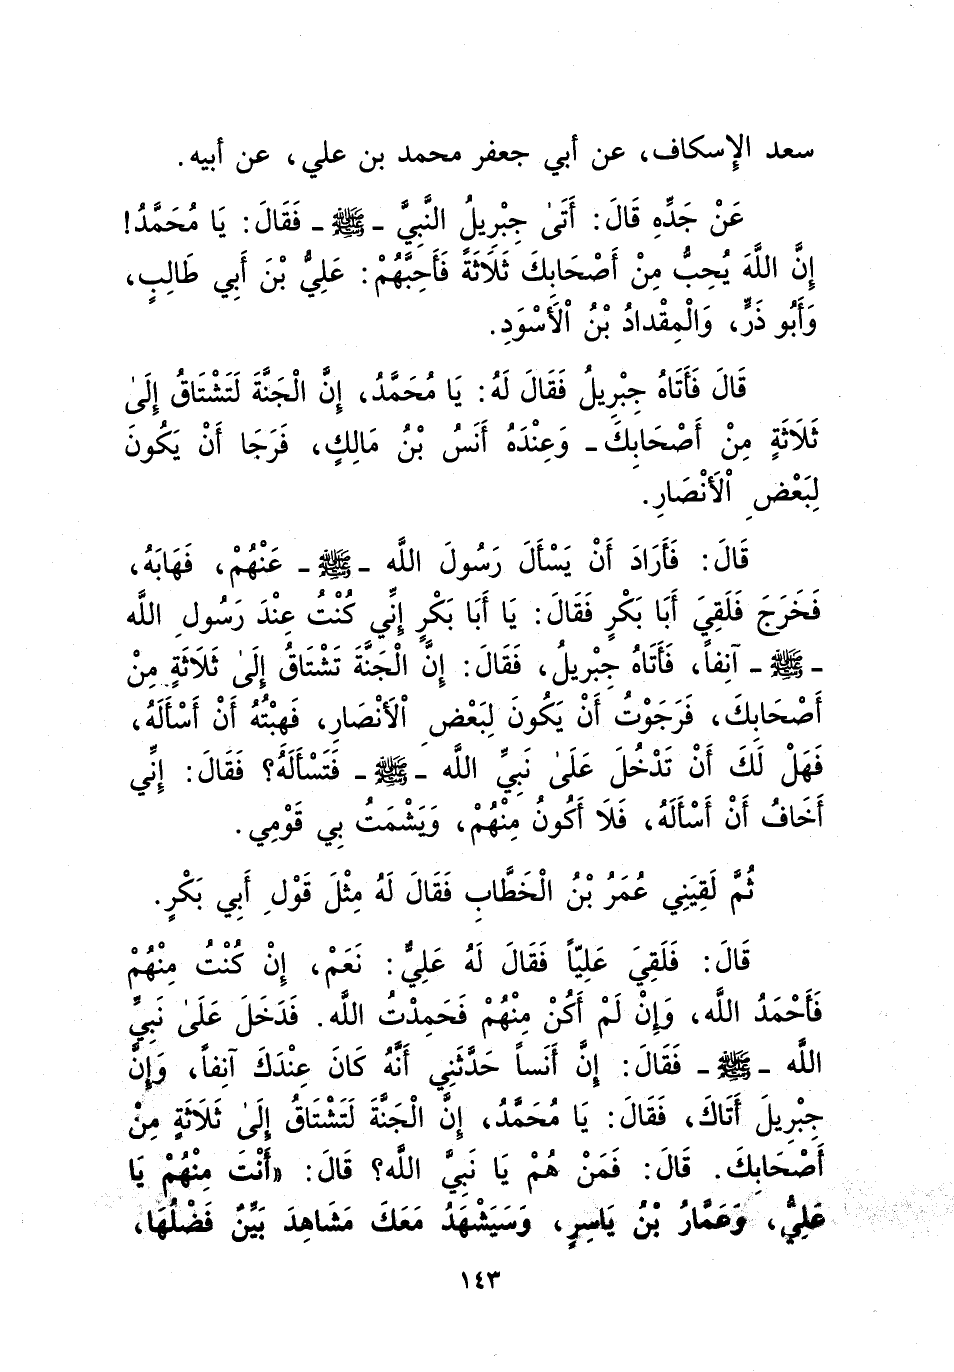 سعد الإسكاف، عن أبي جعفر محمد بن علي، عن أبيه.
عَنْ جَدِّهِ قَالَ: أَتَىٰ جِبْرِيلُ النَّبِيَّ ـ ﷺ ـ فَقَالَ: يَا مُحَمَّدُ!
إِنَّ اللَّهَ يُحِبُّ مِنْ أَصْحَابِكَ ثَلَاثَةً فَأَحِبَّهُمْ: عَلِيُّ بْنَ أَبِي طَالِبٍ،
وَأَبُو ذَرٍّ، وَالْمِقْدادُ بْنُ الْأَسْوَدِ.
قَالَ فَأَتَاهُ جِبْرِيلُ فَقَالَ لَهُ: يَا مُحَمَّدُ، إِنَّ الْجَنَّةَ لَتَشْتَاقُ إِلَىٰ
ثَلَاثَةٍ مِنْ أَصْحَابِكَ ـ وَعِنْدَهُ أَنَسُ بْنُ مَالِكٍ، فَرَجَا أَنْ يَكُونَ
لِبَعْضِ الْأَنْصَارِ.
قَالَ: فَأَرَادَ أَنْ يَسْأَلَ رَسُولَ اللَّه ـ ﷺ ـ عَنْهُمْ، فَهَابَهُ،
فَخَرَجَ فَلَقِيَ أَبَا بَكْرٍ فَقَالَ: يَا أَبَا بَكْرٍ إِنِّي كُنْتُ عِنْدَ رَسُولِ اللَّه
ـ ﷺ ـ آنِفاً، فَأَتَاهُ جِبْرِيلُ، فَقَالَ: إِنَّ الْجَنَّةَ تَشْتَاقُ إِلَىٰ ثَلَاثَةٍ مِنْ
أَصْحَابِكَ، فَرَجَوْتُ أَنْ يَكُونَ لِبَعْضِ الْأَنْصَارِ، فَهِبْتُهُ أَنْ أَسْأَلَهُ،
فَهَلْ لَكَ أَنْ تَدْخُلَ عَلَىٰ نَبِيِّ اللَّه ـ ﷺ ـ فَتَسْأَلَهُ؟ فَقَالَ: إِنِّي
أَخَافُ أَنْ أَسْأَلَهُ، فَلَا أَكُونُ مِنْهُمْ، وَيَشْمَتُ بِي قَوْمِي.
ثُمَّ لَقِيَنِي عُمَرُ بْنُ الْخَطَّابِ فَقَالَ لَهُ مِثْلَ قَوْلِ أَبِي بَكْرٍ.
قَالَ: فَلَقِيَ عَلِيّاً فَقَالَ لَهُ عَلِيٌّ: نَعَمْ، إِنْ كُنْتُ مِنْهُمْ
فَأَحْمَدُ اللَّه، وَإِنْ لَمْ أَكُنْ مِنْهُمْ فَحَمِدْتُ اللَّه. فَدَخَلَ عَلَىٰ نَبِيِّ
اللَّه ـ ﷺ ـ فَقَالَ: إِنَّ أَنَساً حَدَّثَنِي أَنَّهُ كَانَ عِنْدَكَ آنِفاً، وَإِنَّ
جِبْرِيلَ أَتَاكَ، فَقَالَ: يَا مُحَمَّدُ، إِنَّ الْجَنَّةَ لَتَشْتَاقُ إِلَىٰ ثَلَاثَةٍ مِنْ
أَصْحَابِكَ. قَالَ: فَمَنْ هُمْ يَا نَبِيَّ اللَّه؟ قَالَ: «أَنْتَ مِنْهُمْ يَا
عَلِيُّ، وَعَمَّارُ بْنُ يَاسِرٍ، وَسَيَشْهَدُ مَعَكَ مَشَاهِدَ بَيِّنٌ فَضْلُهَا،
١٤٣